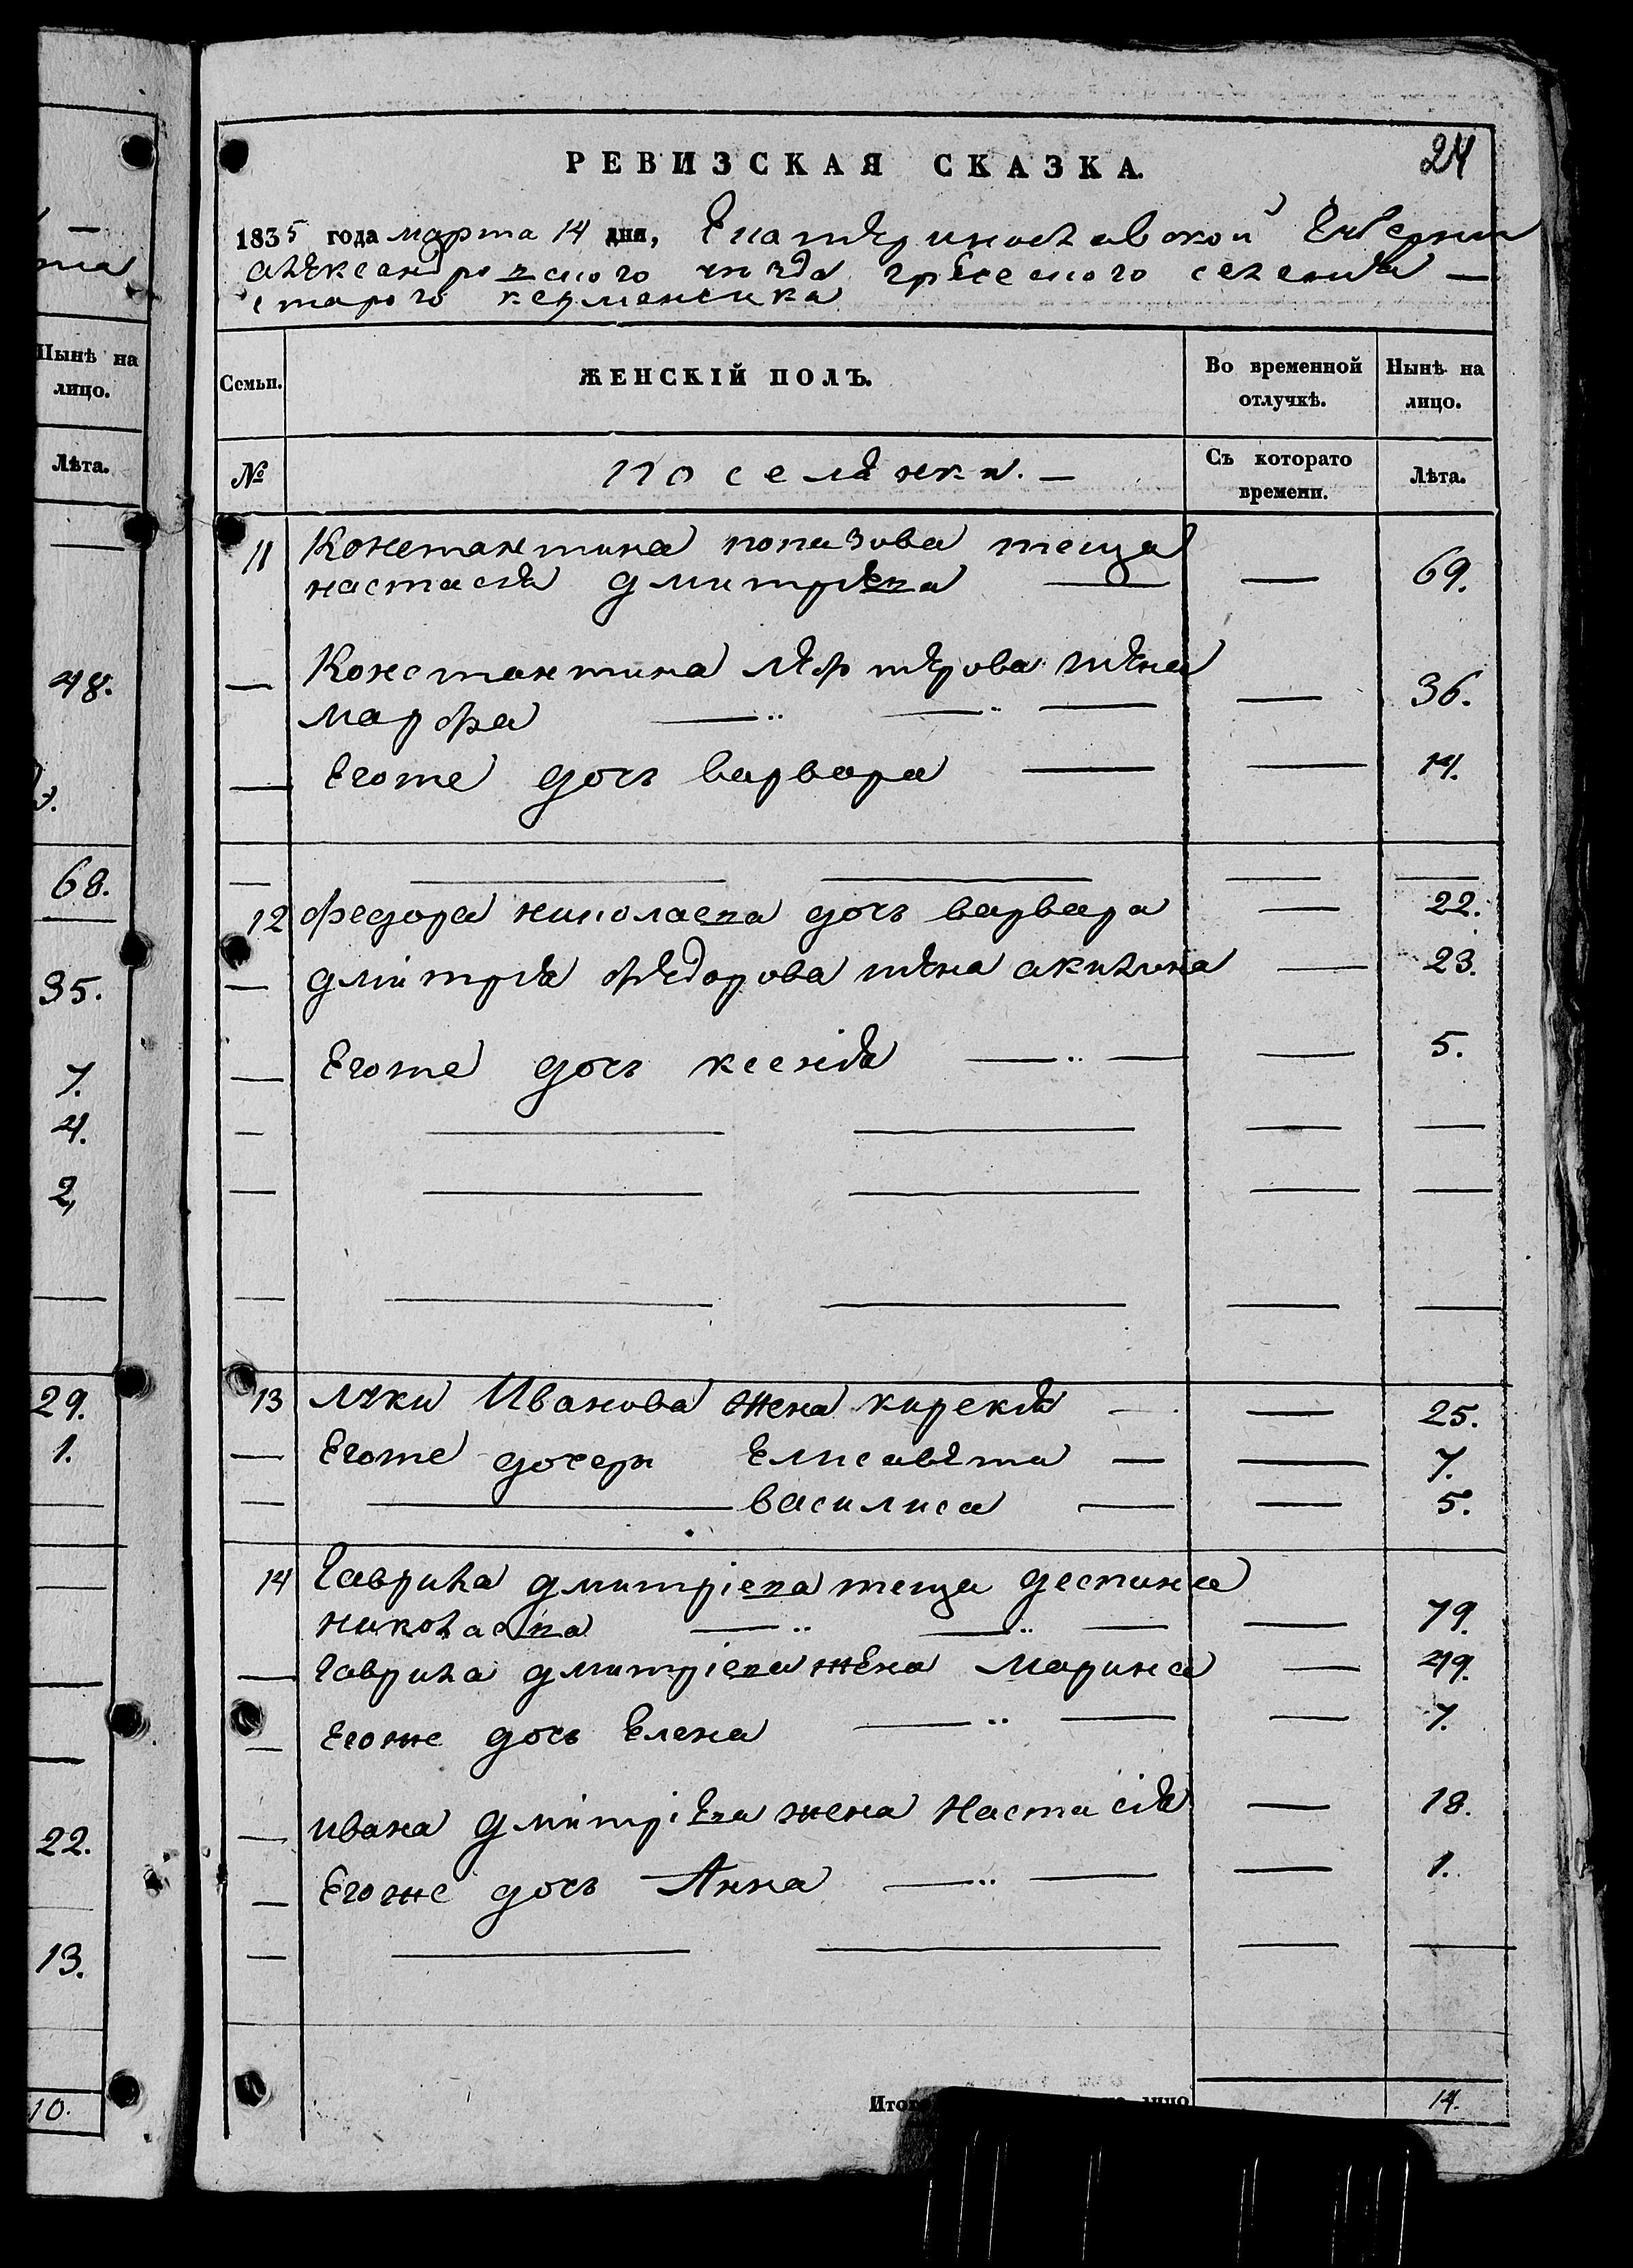 та
Нынѣ на
лицо.
Лѣта.
48.
68.
35.
7.
4.
2,
29.
1.
22.
13.
10.
24
РЕВИЗСКАЯ СКАЗКА.
1835 года марта 14 дня, Екатѣринославской Губерни
алѣксандровского уѣзда грѣческого селениѧ —
старого керменсика
Семьи. ЖЕНСКІЙ ПОЛЪ. Во временной отлучкѣ. Нынѣ на лицо.
№ поселѧнки. — Съ котораго времени. Лѣта.
11 Константина попазова теща
настасиѧ дмитрѣва — — 69.
— Константина лѣфтѣрова жѣна
марфа — — 36.
— Егоже дочъ варвара — — 14.
12 федора николаева дочъ варвара — 22.
— дмитриѧ фѣдорова жѣна акилина — 23.
— Егоже дочъ ксениѧ — — 5.
13 луки Иванова жена кирекиѧ — — 25.
— Егоже дочери Елисавѣта — — 7.
— василиса — — 5.
14 Гаврила дмитріева теща деспина
николаева — — 79.
— Гаврила дмитріева жѣна Марина — 49.
— Егоже дочь Елена — — 7.
— ивана дмитріѣва жена Настасіѧ — 18.
— Егоже дочъ Анна — — 1.
14.